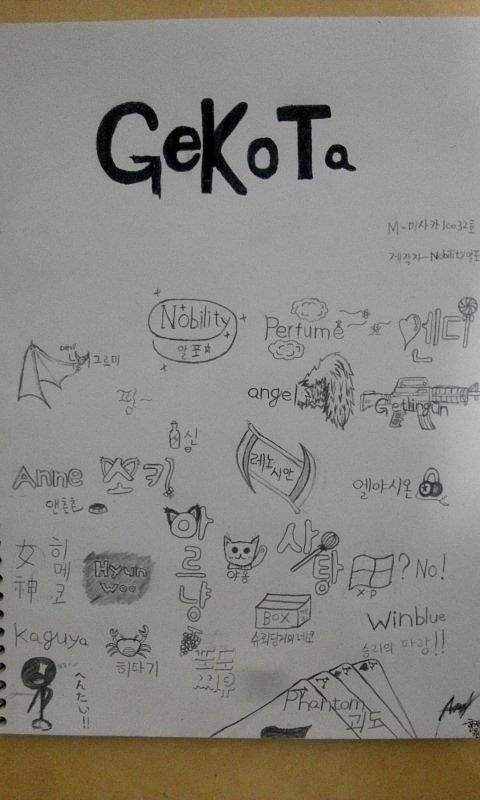 GeKoTa
M-미사카10032호
제작자-Nobility알포
Nobility
알포
Perfume
캔디
Devil
그르미
핑~
angel
Getlingun
신
레노
시안
Anne
쪼키
앤촌촌
엘야시온
아르냥
야옹
사탕
女神
히메코
Hyun
Woo
XP
? No!
BOX
슈뢰딩거의네코
Winblue
승리의 파랑!!
Kaguya
히타기
へんたい!!
Phantom
괴도